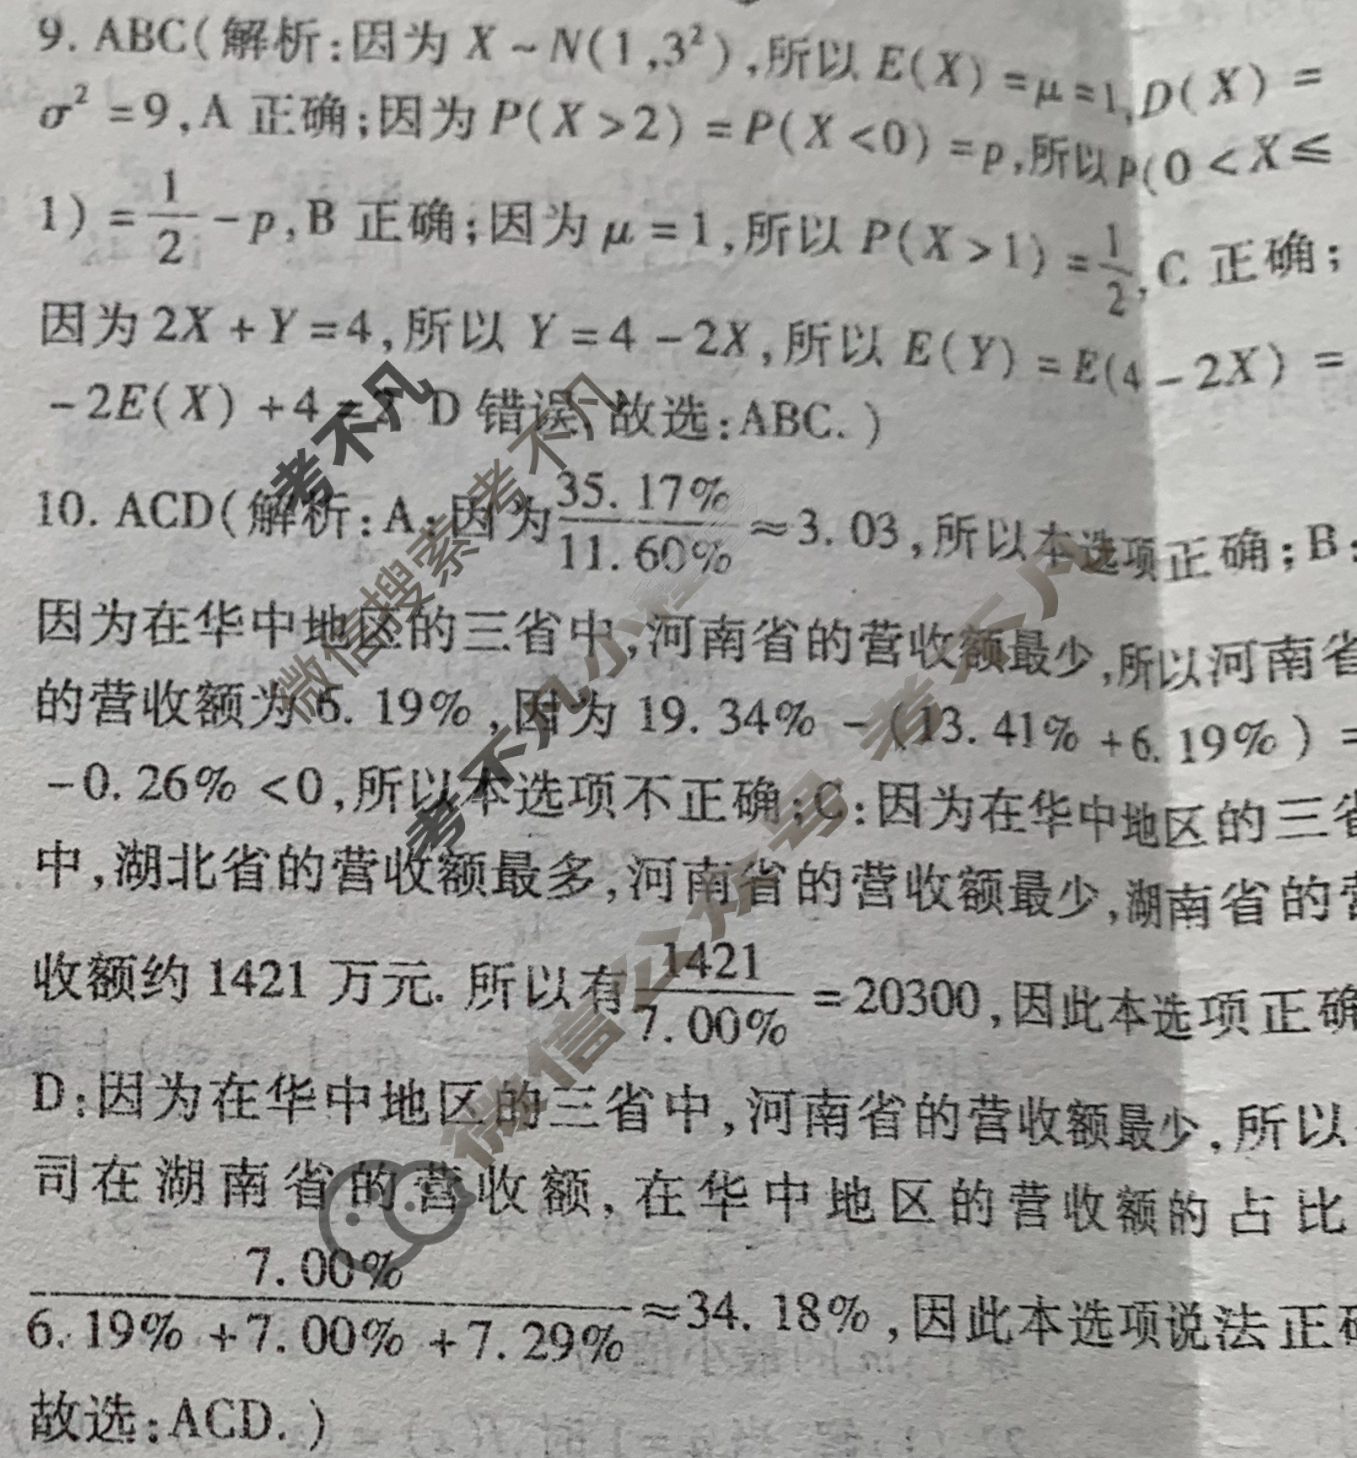 9. ABC(解析:因为 X ~ N(1,3²),所以 E(X) = μ = 1,D(X) =
σ² = 9,A 正确;因为 P(X > 2) = P(X < 0) = p,所以 P(0 < X ≤
1) = 1/2 - p,B 正确;因为 μ = 1,所以 P(X > 1) = 1/2,C 正确;
因为 2X + Y = 4,所以 Y = 4 - 2X,所以 E(Y) = E(4 - 2X) =
-2E(X) + 4 = 2 D 错误,故选:ABC.)
10. ACD(解析:A:因为 35.17%/11.60% ≈ 3.03,所以本选项正确;B:
因为在华中地区的三省中,河南省的营收额最少,所以河南省
的营收额为 6.19%,因为 19.34% - (13.41% + 6.19%) =
-0.26% < 0,所以本选项不正确;C:因为在华中地区的三省
中,湖北省的营收额最多,河南省的营收额最少,湖南省的营
收额约 1421 万元. 所以有 1421/7.00% = 20300,因此本选项正确
D:因为在华中地区的三省中,河南省的营收额最少,所以
司在湖南省的营收额,在华中地区的营收额的占比
7.00%/(6.19% + 7.00% + 7.29%) ≈ 34.18%,因此本选项说法正确
故选:ACD.)
考不凡
微信搜索考不凡
考不凡小程
微信公众号 考不凡